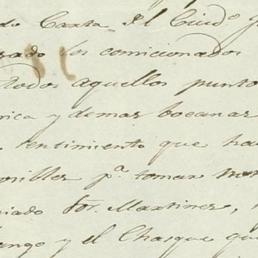 do Carta. El Ciud.º
rado los comicionados
todos aquellos punto
rica y demas bocanas
sentimiento que ha
p.ª tomar
iado Sor. Martinez,
ango y el Chasque que